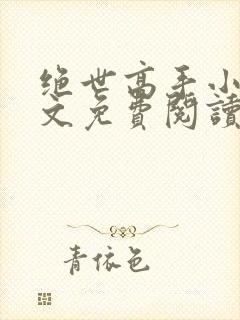 绝世高手小
文免費閱讀
青依色